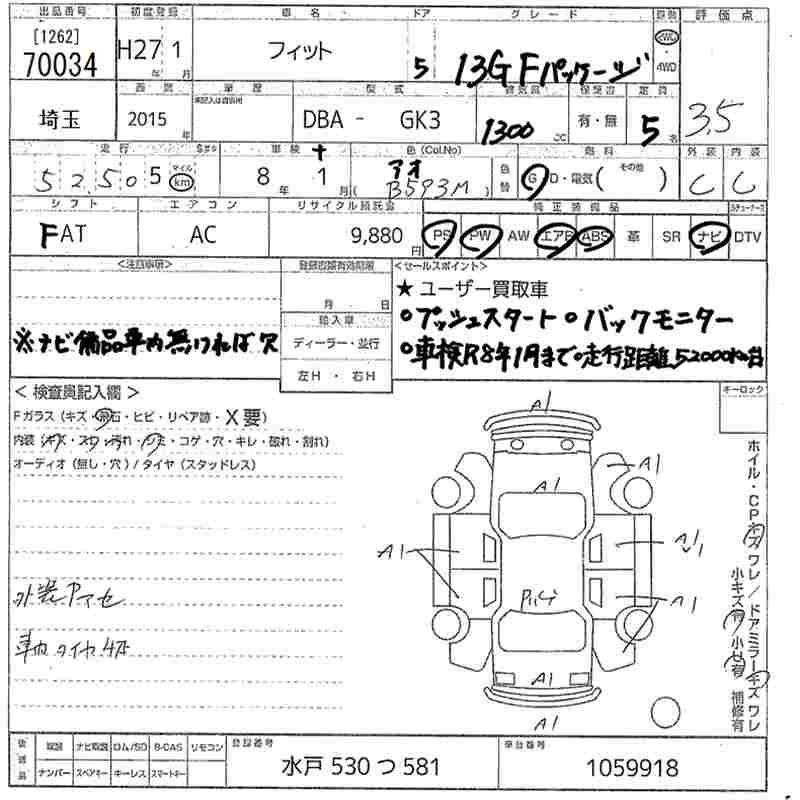 出品番号 初度登録 車名 ドア グレード 駆動 評価点
[1262]
70034 H27 年 1 月 フィット 5 13G Fパッケージ 2WD・4WD 3.5
埼玉 西暦 2015年 車歴 型式 DBA - GK3 排気量 1300cc 保証書 有・無 定員 5名
走行 52505 マイル km 車検 8年 1月 色(Col.No) アオ B593M 色替 燃料 G・D・電気( その他 ) 外装 C 内装 C
シフト エアコン リサイクル預託金 純正装備品
FAT AC 9,880円 PS PW AW エアB ABS 革 SR ナビ DTV
<注意事項> 登録名義有効期限 <セールスポイント>
月 日 ★ ユーザー買取車
輸入車 ○プッシュスタート ○バックモニター
※ナビ備品車内無ければ欠 ディーラー・並行 ○車検R8年1月まで○走行距離52000km台
左H ・ 右H
< 検査員記入欄 > キーロック
Fガラス (キズ・飛石・ヒビ・リペア跡・X要)
内装 (キズ・スレ・汚れ・シミ・コゲ・穴・キレ・破れ・割れ)
オーディオ (無し・穴) / タイヤ (スタッドレス)
A1
A1
A1
A1
A1
A1
外装Pアセ
車内タイヤ4本
A1
A1
ホイル・CPキズ ワレ / ドアミラーキズ ワレ
小キズ有 / 小凹有 補修有
後日品 取説 ナビ取説 ロム/SD B-CAS リモコン 登録番号 車台番号
ナンバー スペアキー キーレス スマートキー 水戸 530 つ 581 1059918